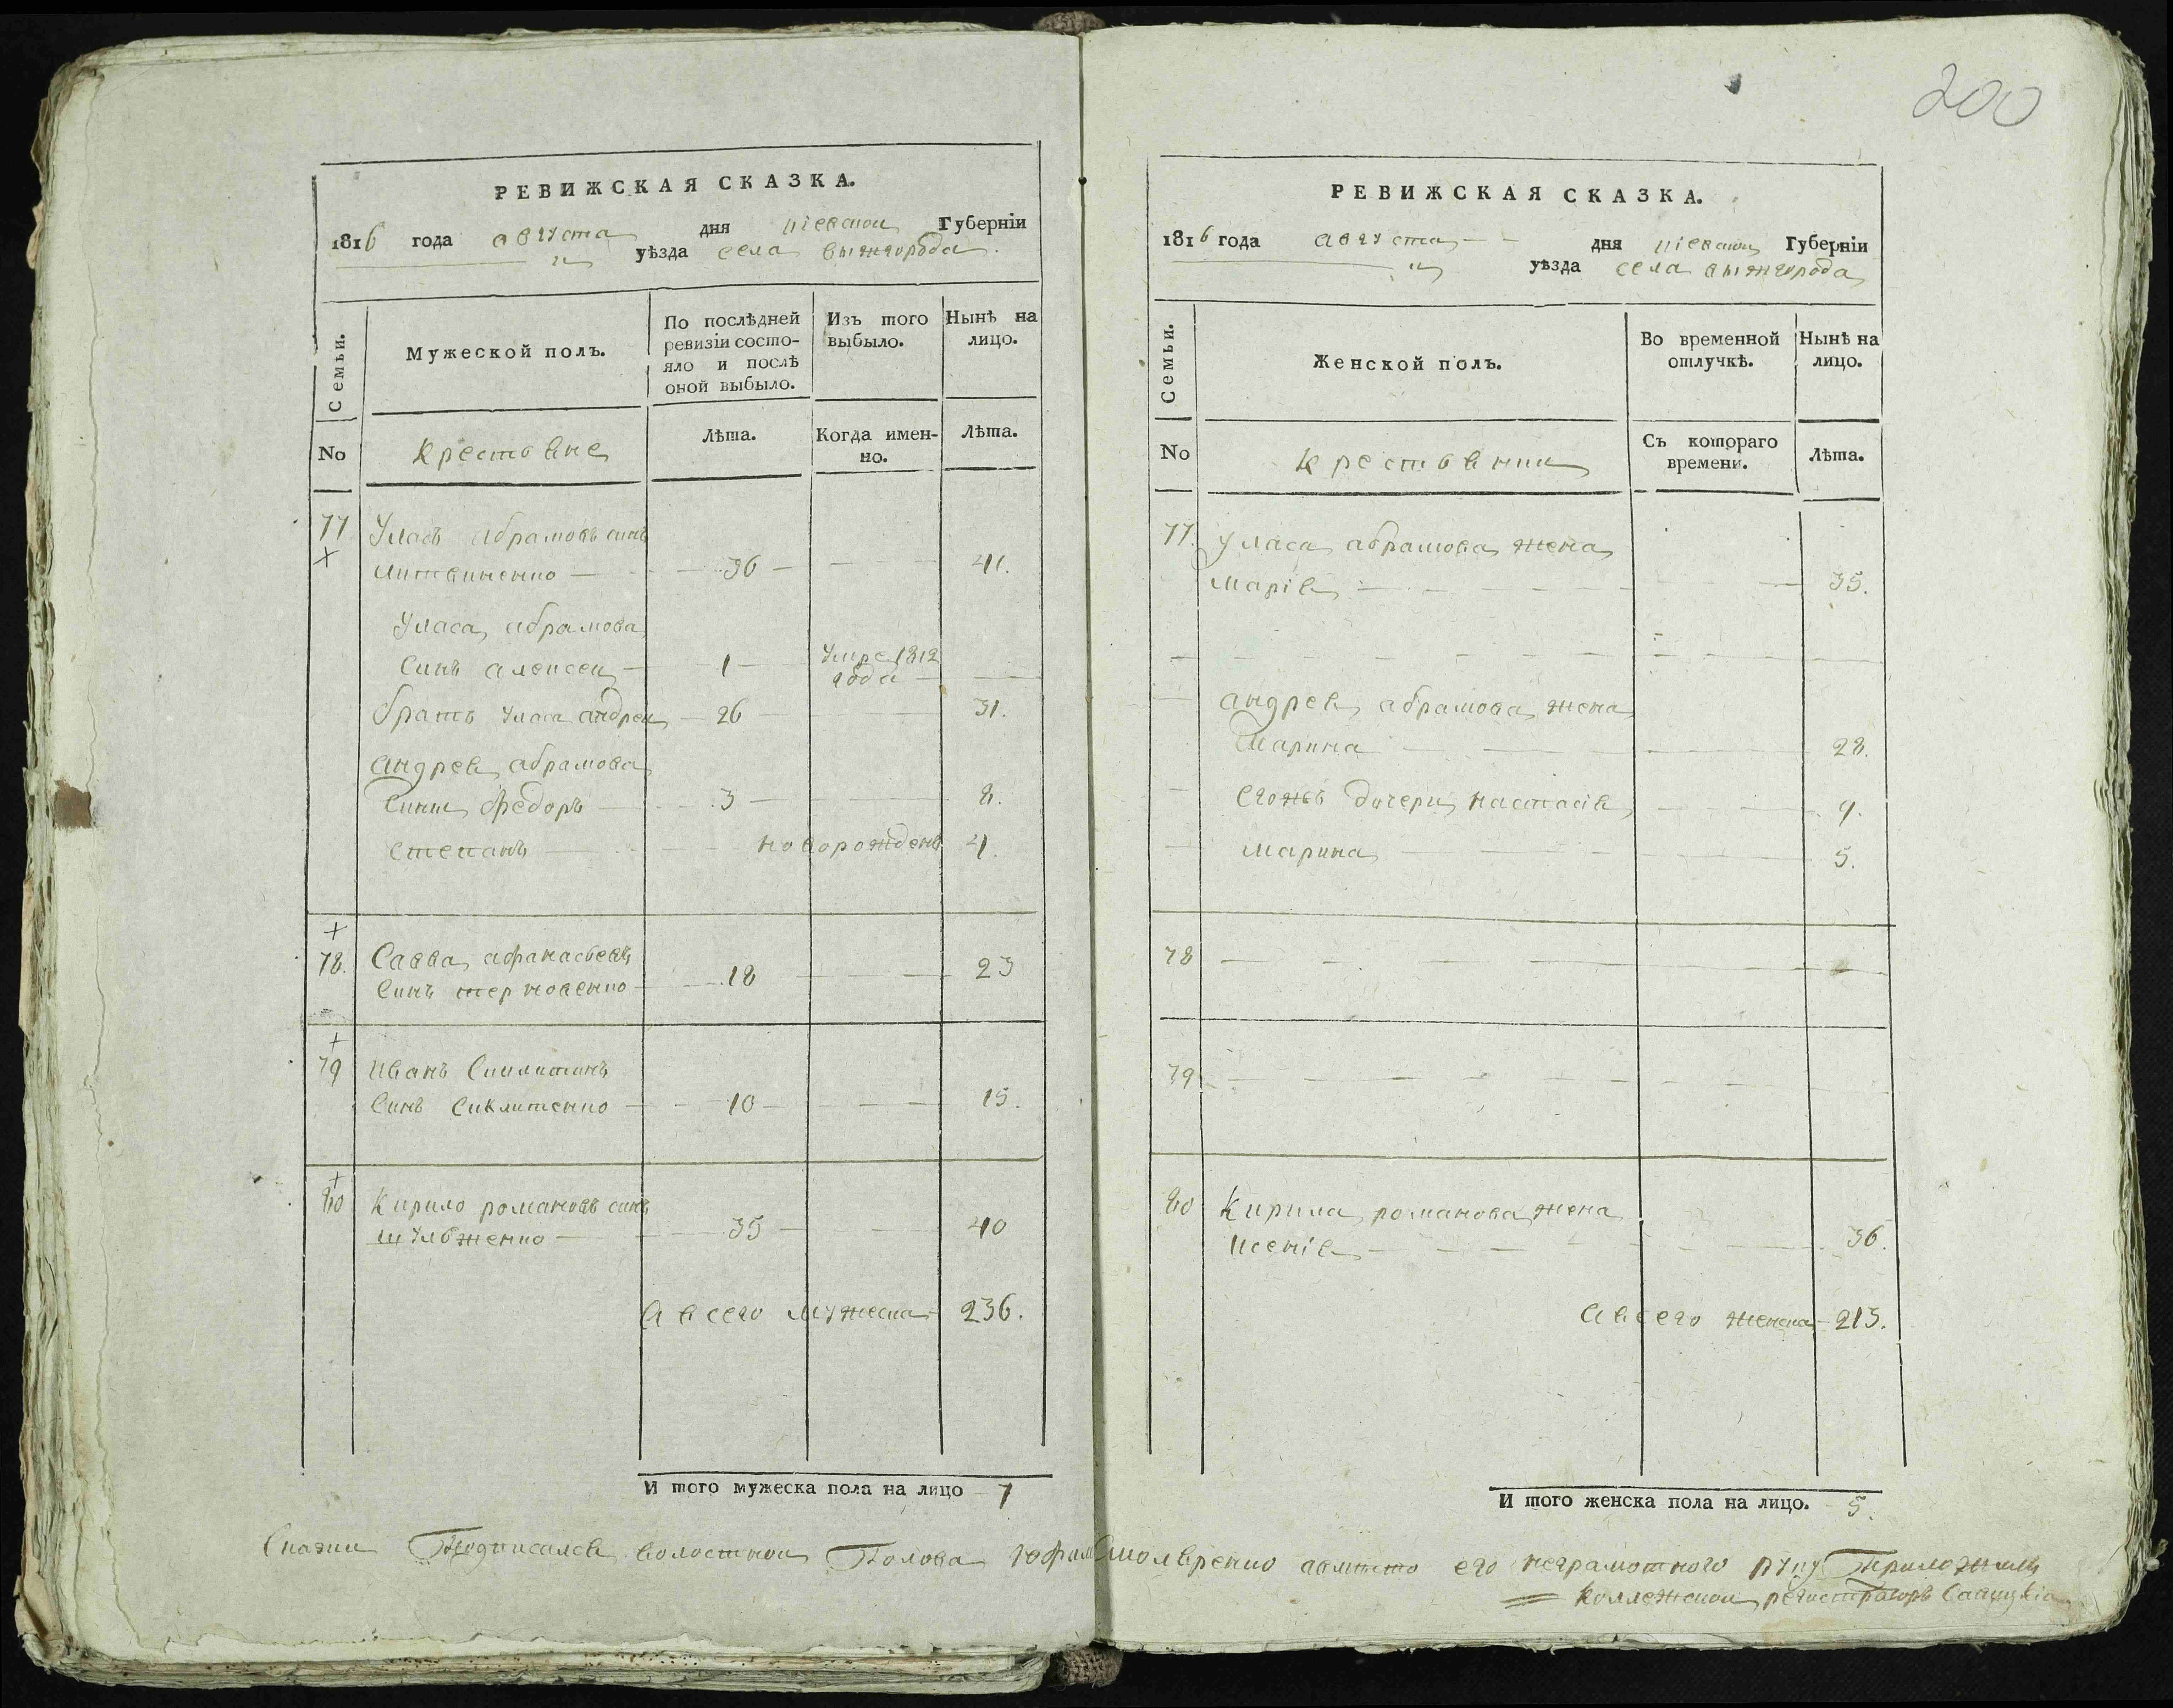 200
РЕВИЖСКАЯ СКАЗКА.
1816 года августа дня киевской Губерніи
уѣзда села вышгорода
Семьи.
Мужеской полъ.
По послѣдней ревизіи состо-
яло и послѣ
оной выбыло.
Изъ того
выбыло.
Нынѣ на
лицо.
No
крестьяне
Лѣта.
Когда имен-
но.
Лѣта.
77 Уласъ абрамовъ синъ
литвиненко 36 41.
Уласа абрамова
синъ алексей 1 умре 1812
года
братъ уласа андрей 26 31.
андрея абрамова
сины федоръ 3 8.
степанъ новорожденъ 4.
78. Савва афанасьевъ
синъ терновенко 18 23
79 иванъ
синъ сиклитенко 10 15.
80 Кирило романовъ синъ
шульженко 35 40
а всего мужеска 236.
И того мужеска пола на лицо 7
РЕВИЖСКАЯ СКАЗКА.
1816 года августа дня киевской Губерніи
уѣзда села вышгорода
Семьи.
Женской полъ.
Во временной
отлучкѣ.
Нынѣ на
лицо.
No
крестьянки
Съ котораго
времени.
Лѣта.
77. уласа абрамова жена
марія 35.
андрея абрамова жена
марина 28.
егожъ дочери настасія 9.
марина 5.
78
79
80 Кирила романова жена
ксенія 36.
а всего женска 213.
И того женска пола на лицо. 5.
Сказки Подписался волостной Голова его неграмотного руку Приложилъ
Колежской регистраторъ